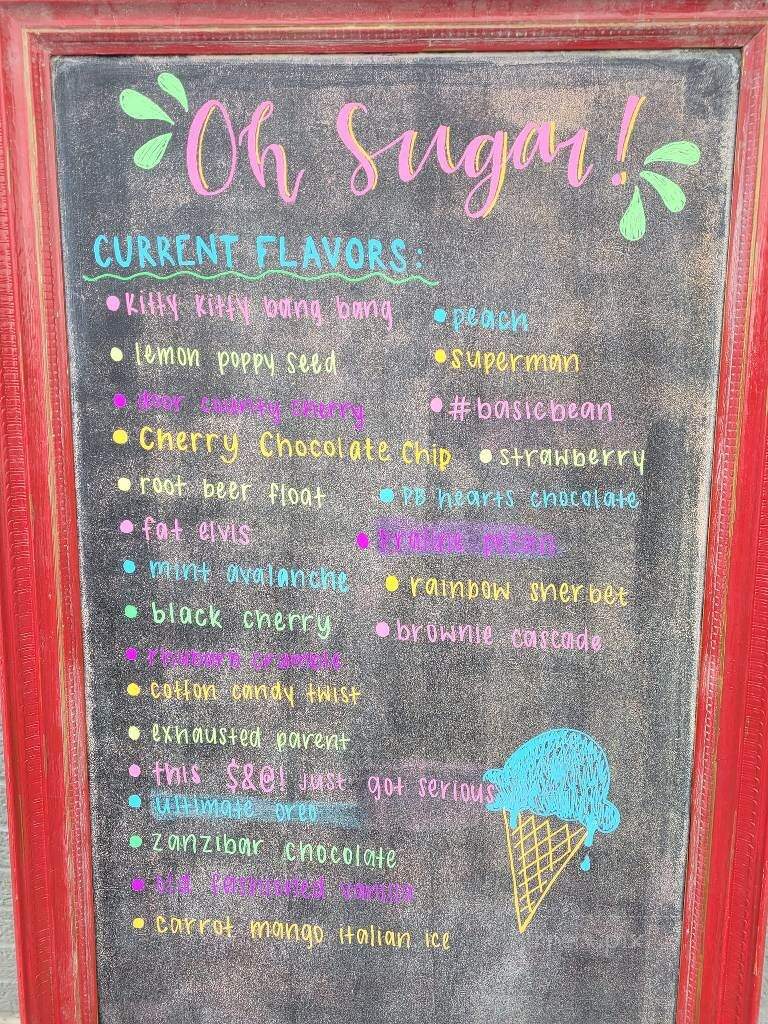 Oh Sugar!
CURRENT FLAVORS:
• kitty kitty bang bang
• lemon poppy seed
• door county cherry
• Cherry Chocolate Chip
• root beer float
• fat elvis
• mint avalanche
• black cherry
• rhubarb crumble
• cotton candy twist
• exhausted parent
• this $&@! just got serious
• ultimate oreo
• zanzibar chocolate
• old fashioned vanilla
• carrot mango italian ice
• peach
• superman
• #basicbean
• strawberry
• PB hearts chocolate
• Praline pecan
• rainbow sherbet
• brownie cascade